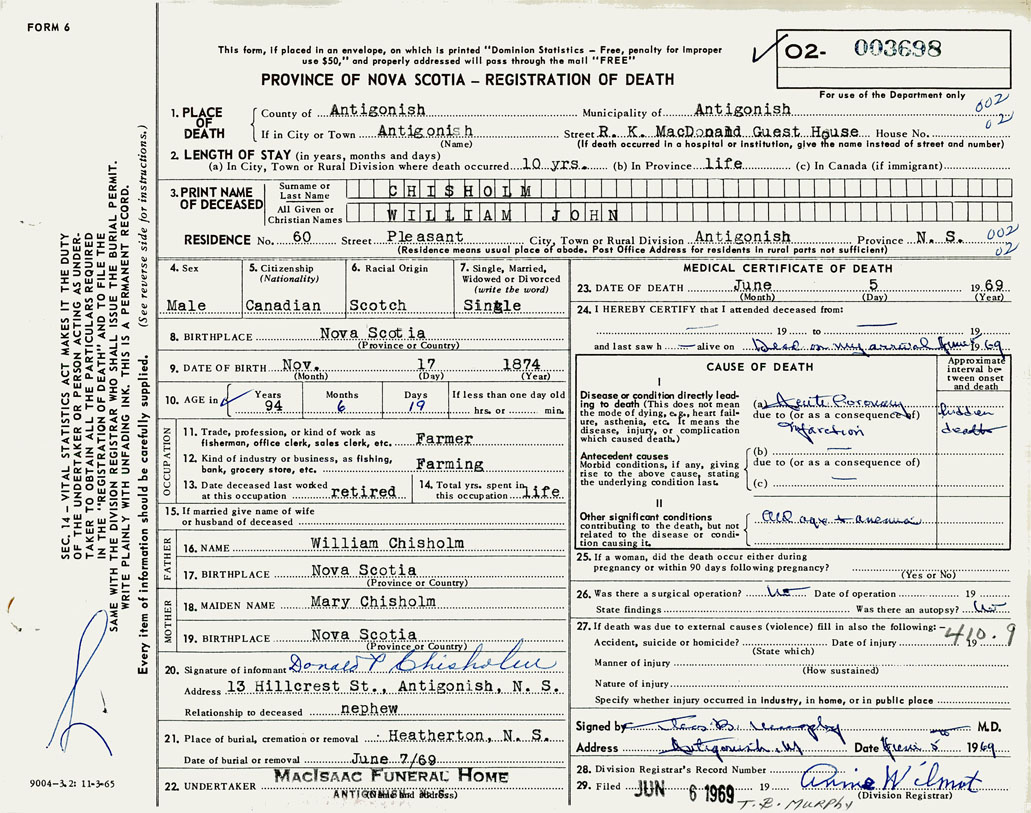 FORM 6
This form, if placed in an envelope, on which is printed "Dominion Statistics – Free, penalty for improper
use $50," and properly addressed will pass through the mail "FREE"
PROVINCE OF NOVA SCOTIA – REGISTRATION OF DEATH
02- 003698
For use of the Department only
SEC. 14 – VITAL STATISTICS ACT MAKES IT THE DUTY
OF THE UNDERTAKER OR PERSON ACTING AS UNDER-
TAKER TO OBTAIN ALL THE PARTICULARS REQUIRED
IN THE "REGISTRATION OF DEATH" AND TO FILE THE
SAME WITH THE DIVISION REGISTRAR WHO SHALL ISSUE THE BURIAL PERMIT.
WRITE PLAINLY WITH UNFADING INK. THIS IS A PERMANENT RECORD.
Every item of information should be carefully supplied. (See reverse side for instructions.)
1. PLACE OF DEATH
County of Antigonish Municipality of Antigonish 002
If in City or Town Antigonish Street R. K. MacDonald Guest House House No. 02
(Name) (If death occurred in a hospital or institution, give the name instead of street and number)
2. LENGTH OF STAY (in years, months and days)
(a) In City, Town or Rural Division where death occurred 10 yrs. (b) In Province life (c) In Canada (if immigrant)
3. PRINT NAME OF DECEASED
Surname or Last Name CHISHOLM
All Given or Christian Names WILLIAM JOHN
RESIDENCE No. 60 Street Pleasant City, Town or Rural Division Antigonish Province N. S. 002
(Residence means usual place of abode. Post Office Address for residents in rural parts not sufficient) 02
4. Sex
Male
5. Citizenship (Nationality)
Canadian
6. Racial Origin
Scotch
7. Single, Married, Widowed or Divorced (write the word)
Single
8. BIRTHPLACE Nova Scotia
(Province or Country)
9. DATE OF BIRTH Nov. 17 1874
(Month) (Day) (Year)
10. AGE in Years Months Days If less than one day old
94 6 19 hrs. or min.
OCCUPATION
11. Trade, profession, or kind of work as
fisherman, office clerk, sales clerk, etc. Farmer
12. Kind of industry or business, as fishing,
bank, grocery store, etc. Farming
13. Date deceased last worked
at this occupation retired
14. Total yrs. spent in
this occupation life
15. If married give name of wife
or husband of deceased
FATHER
16. NAME William Chisholm
17. BIRTHPLACE Nova Scotia
(Province or Country)
MOTHER
18. MAIDEN NAME Mary Chisholm
19. BIRTHPLACE Nova Scotia
(Province or Country)
20. Signature of informant Donald P Chisholm
Address 13 Hillcrest St., Antigonish, N. S.
Relationship to deceased nephew
21. Place of burial, cremation or removal Heatherton, N. S.
Date of burial or removal June 7/69
22. UNDERTAKER MACISAAC FUNERAL HOME
ANTIGONISH, N. S.
9004-3.2: 11-3-65
MEDICAL CERTIFICATE OF DEATH
23. DATE OF DEATH June 5 1969
(Month) (Day) (Year)
24. I HEREBY CERTIFY that I attended deceased from:
19 to 19
and last saw h alive on Dead on my arrival June 5 1969
CAUSE OF DEATH
Approximate interval between onset and death
I
Disease or condition directly lead-
ing to death (This does not mean
the mode of dying, e.g., heart fail-
ure, asthenia, etc. It means the
disease, injury, or complication
which caused death.)
(a) Acute Coronary
due to (or as a consequence of)
infarction
death
Antecedent causes
Morbid conditions, if any, giving
rise to the above cause, stating
the underlying condition last.
(b)
due to (or as a consequence of)
(c)
II
Other significant conditions
contributing to the death, but not
related to the disease or condi-
tion causing it.
Old age + anemia
25. If a woman, did the death occur either during
pregnancy or within 90 days following pregnancy?
(Yes or No)
26. Was there a surgical operation? No Date of operation 19
State findings Was there an autopsy? No
27. If death was due to external causes (violence) fill in also the following:
410.9
Accident, suicide or homicide? Date of injury 19
(State which)
Manner of injury
(How sustained)
Nature of injury
Specify whether injury occurred in industry, in home, or in public place
Signed by B. Murphy M.D.
Address Antigonish, Date June 5 1969
28. Division Registrar's Record Number
29. Filed JUN 6 1969 19 Annie Wilmot
(Division Registrar)
T. B. MURPHY